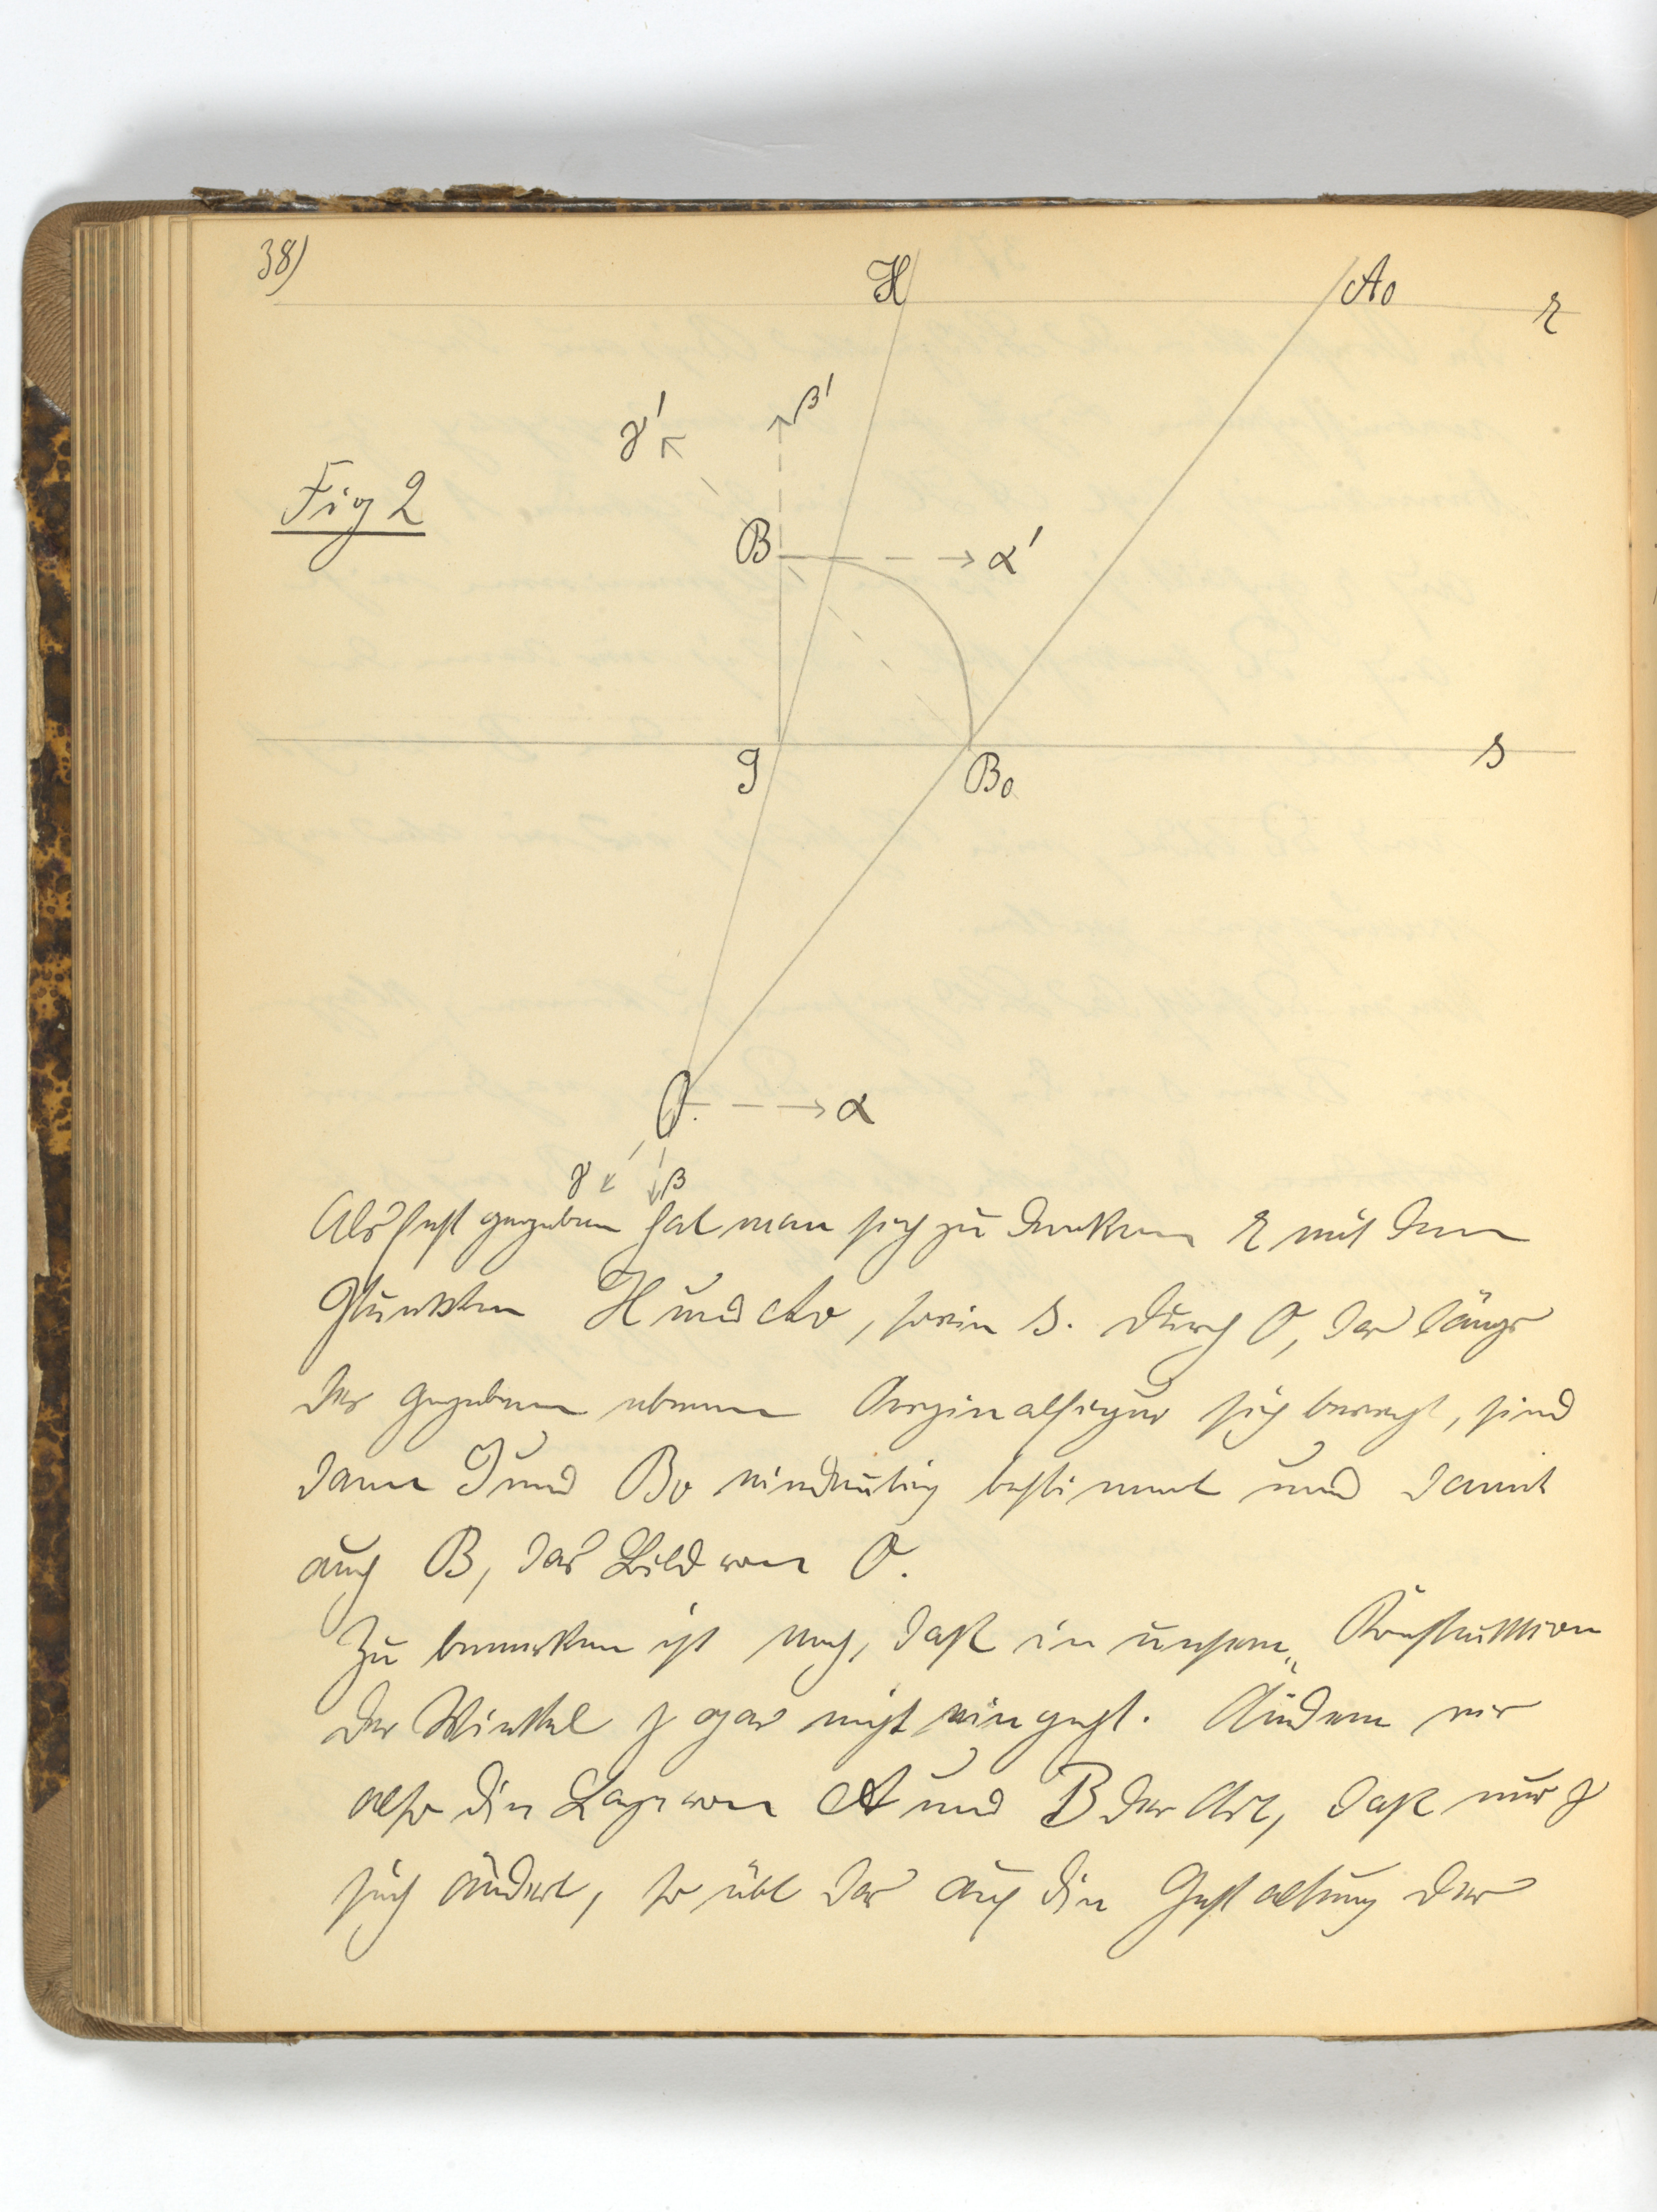 38)
H
A0
r
γ'
β'
Fig 2
B
α'
J
B0
s
O
α
γ
β
Als fest gegeben hat man sich zu denken r mit den
Punkten H und A0, sowie s. Durch O, der längs
der gegebenen ebenen Originalfigur sich bewegt, sind
dann J und B0 eindeutig bestimmt und damit
auch B, das Bild von O.
Zu bemerken ist noch, daß in unsere Konstruktion
der Winkel γ gar nicht eingeht. Ändern wir
also die Lage von A und B der Art, daß nur γ
sich ändert, so übt das auf die Gestaltung der